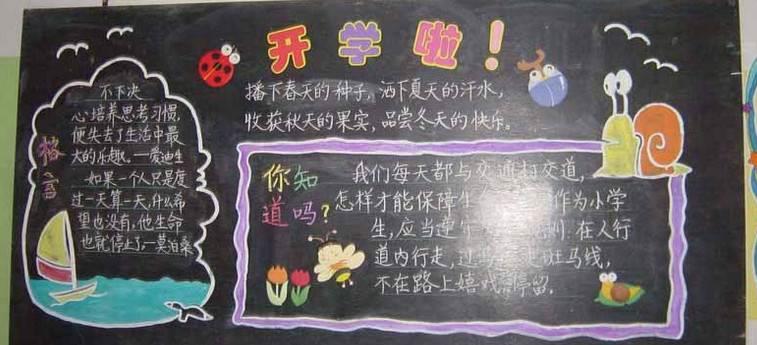 开学啦!
播下春天的种子,洒下夏天的汗水,
收获秋天的果实,品尝冬天的快乐。
格言
不下决
心培养思考习惯,
便失去了生活中最
大的乐趣。—爱迪生
如果一个人只是度
过一天算一天,什么希
望也没有,他生命
也就停止了—莫泊桑
你知
道吗?
我们每天都与交通打交道,
怎样才能保障生 作为小学
生,应当遵守 : 在人行
道内行走,过 斑马线,
不在路上嬉戏 停留。